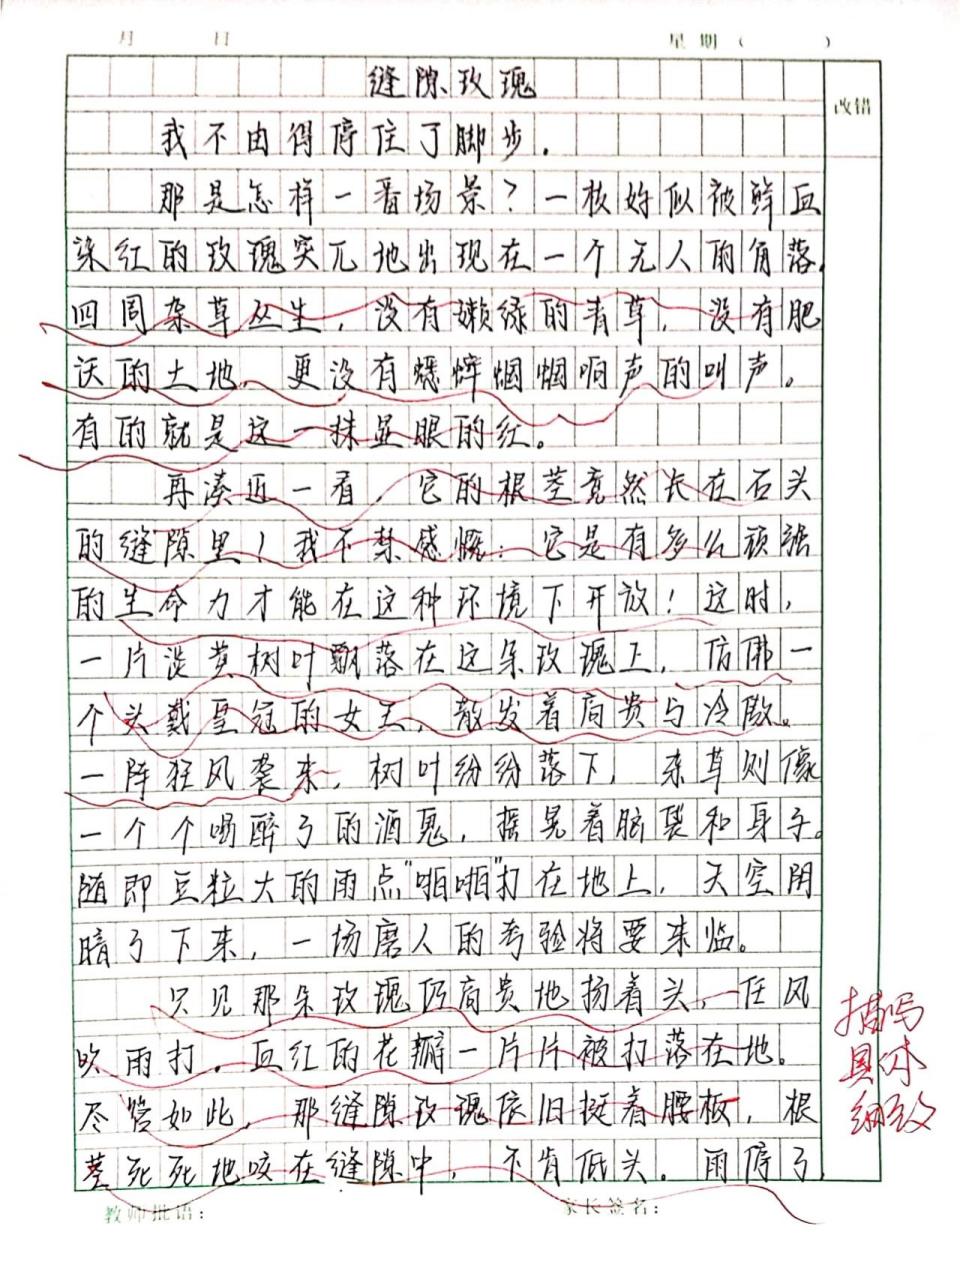 月 日 星期( )
缝隙玫瑰
改错
我不由得停住了脚步.
那是怎样一番场景?一枚好似被鲜血
染红的玫瑰突兀地出现在一个无人的角落,
四周杂草丛生,没有嫩绿的青草,没有肥
沃的土地,更没有蟋蟀蝈蝈响声的叫声。
有的就是这一抹显眼的红。
再凑近一看,它的根茎竟然长在石头
的缝隙里!我不禁感慨:它是有多么顽强
的生命力才能在这种环境下开放!这时,
一片淡黄树叶飘落在这朵玫瑰上,仿佛一
个头戴皇冠的女王,散发着高贵与冷傲。
一阵狂风袭来,树叶纷纷落下,杂草则像
一个个喝醉了的酒鬼,摇晃着脑袋和身子。
随即豆粒大的雨点"啪啪"打在地上,天空阴
暗了下来,一场磨人的考验将要来临。
只见那朵玫瑰仍高贵地扬着头,任风
吹雨打.血红的花瓣一片片被打落在地。
尽管如此,那缝隙玫瑰依旧挺着腰板,根
茎死死地咬在缝隙中,不肯低头。雨停了,
描写
具体
细致
教师批语: 家长签名: